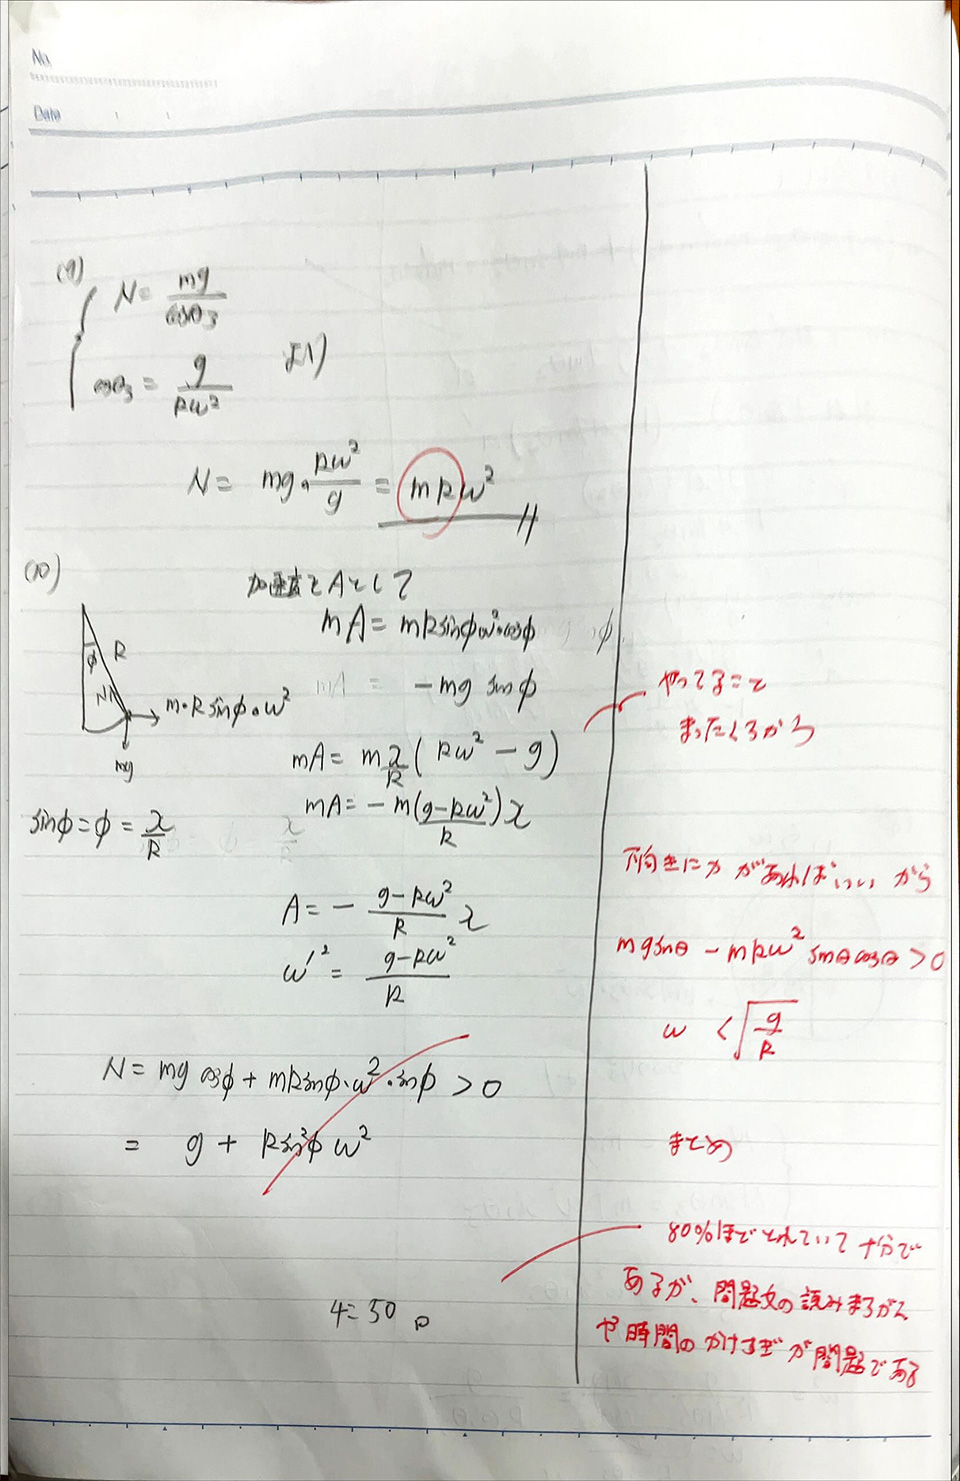 No.
Date
(9)
N = mg/cosθ₃
cosθ₃ = g/Rω² より
N = mg・Rω²/g = mRω²
(10)
加速度をAとして
mA = mRsinφω²・cosφ
φ R
N
m・Rsinφ・ω²
mg
mA = -mg sinφ
mA = m x/R (Rω² - g)
sinφ = φ = x/R
mA = -m(g-Rω²)/R x
A = - (g-Rω²)/R x
ω'² = (g-Rω²)/R
N = mg cosφ + mRsinφ・ω²・sinφ > 0
= g + Rsin²φ ω²
4=50
やってること
まったくちがう
下向きに力があればいいから
mgsinθ - mRω² sinθcosθ > 0
ω < √(g/R)
まとめ
80%ほどとれていて十分で
あるが、問題文の読みまちがえ
や時間のかけすぎが問題である